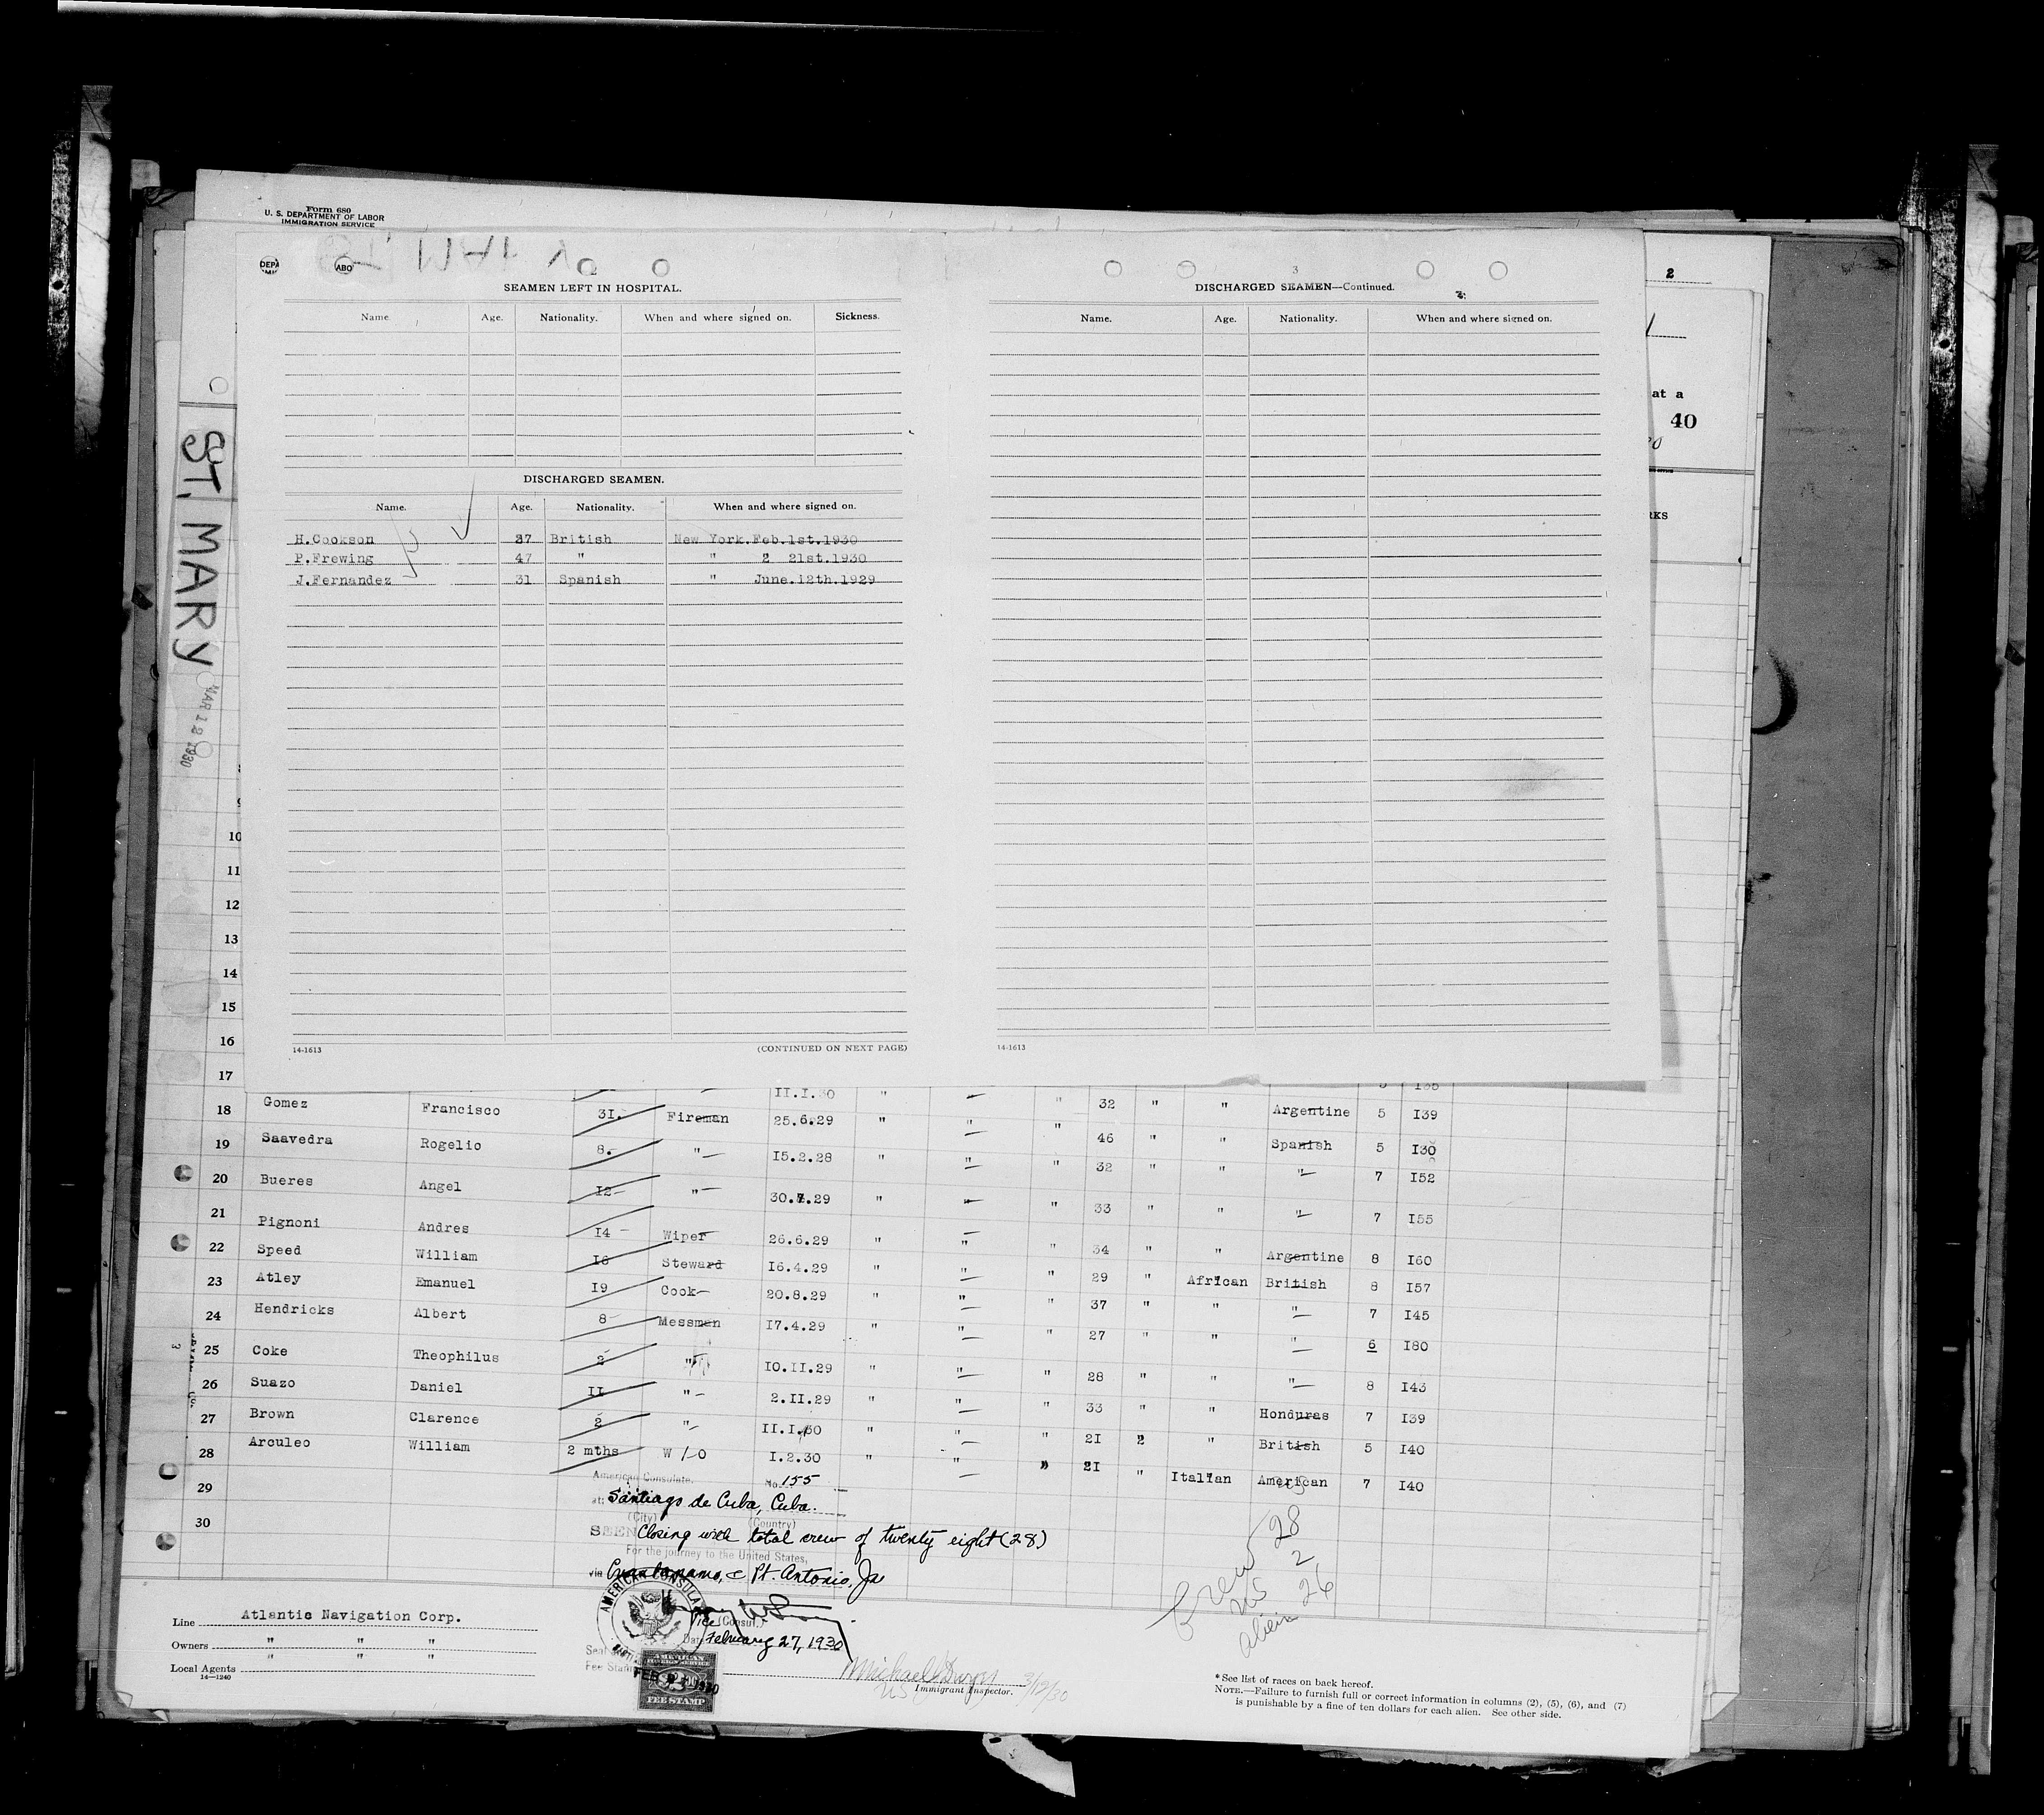 Form 680
U. S. DEPARTMENT OF LABOR
IMMIGRATION SERVICE
2
at a
40
RKS
ST. MARY
MAR 12 1930
SEAMEN LEFT IN HOSPITAL.
Name. Age. Nationality. When and where signed on. Sickness.
DISCHARGED SEAMEN.
Name. Age. Nationality. When and where signed on.
H.Cookson 37 British New York.Feb.1st.1930
P.Frewing 47 " " 2 21st.1930
J.Fernandez 31 Spanish " June.12th.1929
14-1613 (CONTINUED ON NEXT PAGE)
3
DISCHARGED SEAMEN—Continued.
Name. Age. Nationality. When and where signed on.
14-1613
10
11
12
13
14
15
16
17 II.I.30 "
18 Gomez Francisco 3I. Fireman 25.6.29 " " " 32 " " Argentine 5 I39
19 Saavedra Rogelio 8. " I5.2.28 " " " 46 " " Spanish 5 I30
20 Bueres Angel I2 " 30.7.29 " " " 32 " " " 7 I52
21 Pignoni Andres I4 Wiper 26.6.29 " " " 33 " " " 7 I55
22 Speed William I6 Steward I6.4.29 " " " 34 " " Argentine 8 I60
23 Atley Emanuel I9 Cook 20.8.29 " " " 29 " African British 8 I57
24 Hendricks Albert 8 Messman I7.4.29 " " " 37 " " " 7 I45
25 Coke Theophilus 2 " I0.II.29 " " " 27 " " " 6 I80
26 Suazo Daniel II " 2.II.29 " " " 28 " " " 8 I43
27 Brown Clarence 2 " II.I.30 " " " 33 " " Honduras 7 I39
28 Arculeo William 2 mths W/O I.2.30 " " " 2I 2 " British 5 I40
29 2I " Italian American 7 I40
30
American Consulate. No. 155
at: Santiago de Cuba, Cuba.
(City) (Country)
SEEN Closing with total crew of twenty eight (28)
For the journey to the United States,
via Guantanamo, c Pt. Antonio, Ja
AMERICAN CONSULATE
Vice Consul.
Date February 27, 1930
AMERICAN FOREIGN SERVICE
FEE STAMP
Crew 28
US 2
alien 26
Line Atlantic Navigation Corp.
Owners " " "
Local Agents " " "
14—1240
3/12/30
Immigrant Inspector.
* See list of races on back hereof.
NOTE.—Failure to furnish full or correct information in columns (2), (5), (6), and (7)
is punishable by a fine of ten dollars for each alien. See other side.